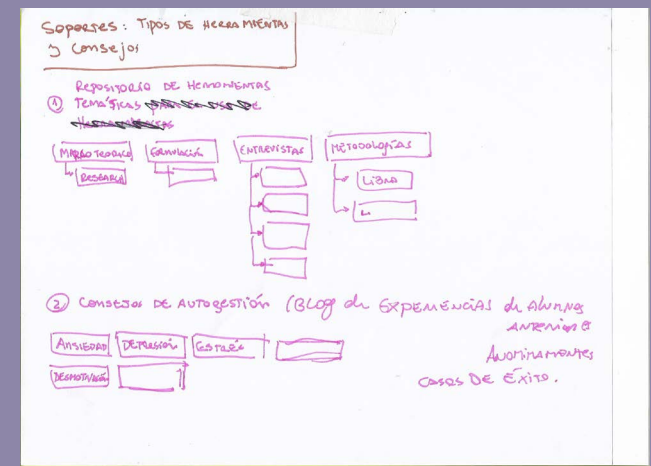 Soportes: Tipos de Herramientas
y Consejos
Repositorio de Herramientas
① Temáticas
Marco teorico
Formulación
Entrevistas
Metodologías
Research
Libro
② Consejos de Autogestión (Blog de Experiencias de Alumnos
Anteriores
Anonimamente
Casos de Éxito.
Ansiedad
Depresión
Estrés
Desmotivación